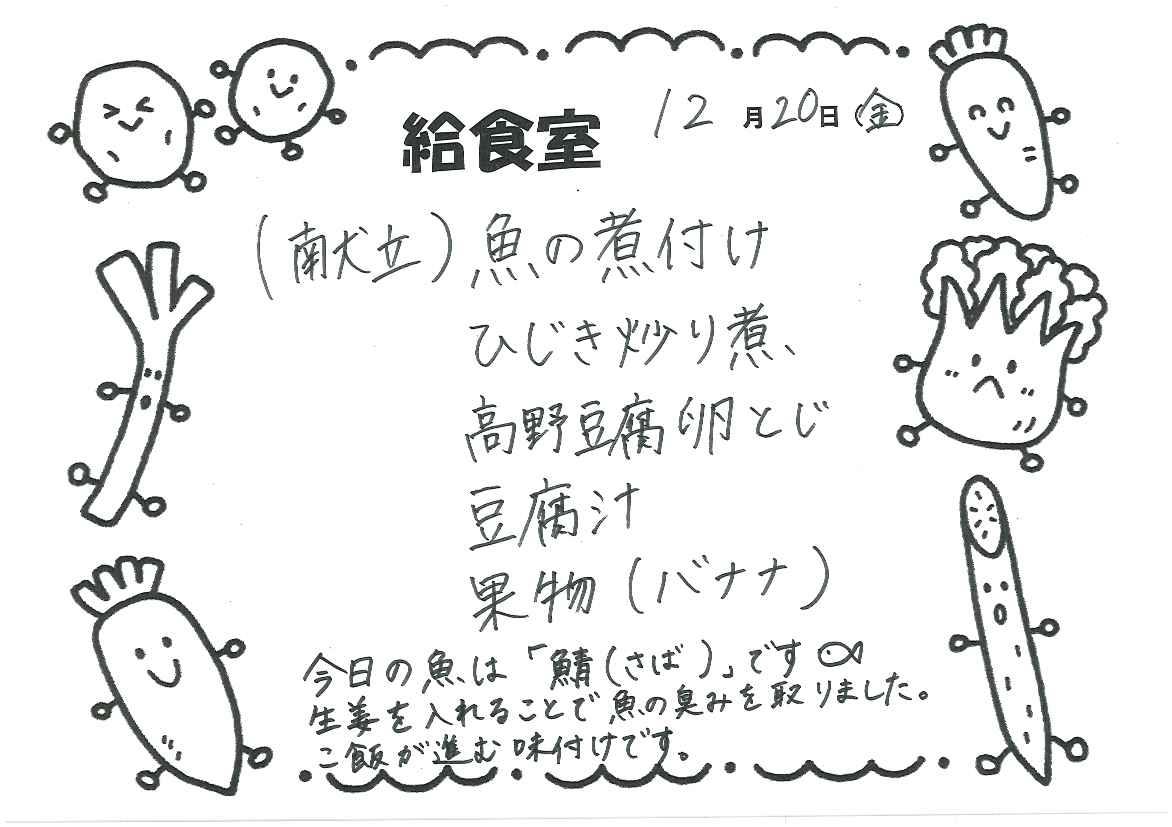 給食室 12月20日(金)
(献立)魚の煮付け
ひじき炒り煮
高野豆腐卵とじ
豆腐汁
果物(バナナ)
今日の魚は「鯖(さば)」です
生姜を入れることで魚の臭みを取りました。
ご飯が進む味付けです。